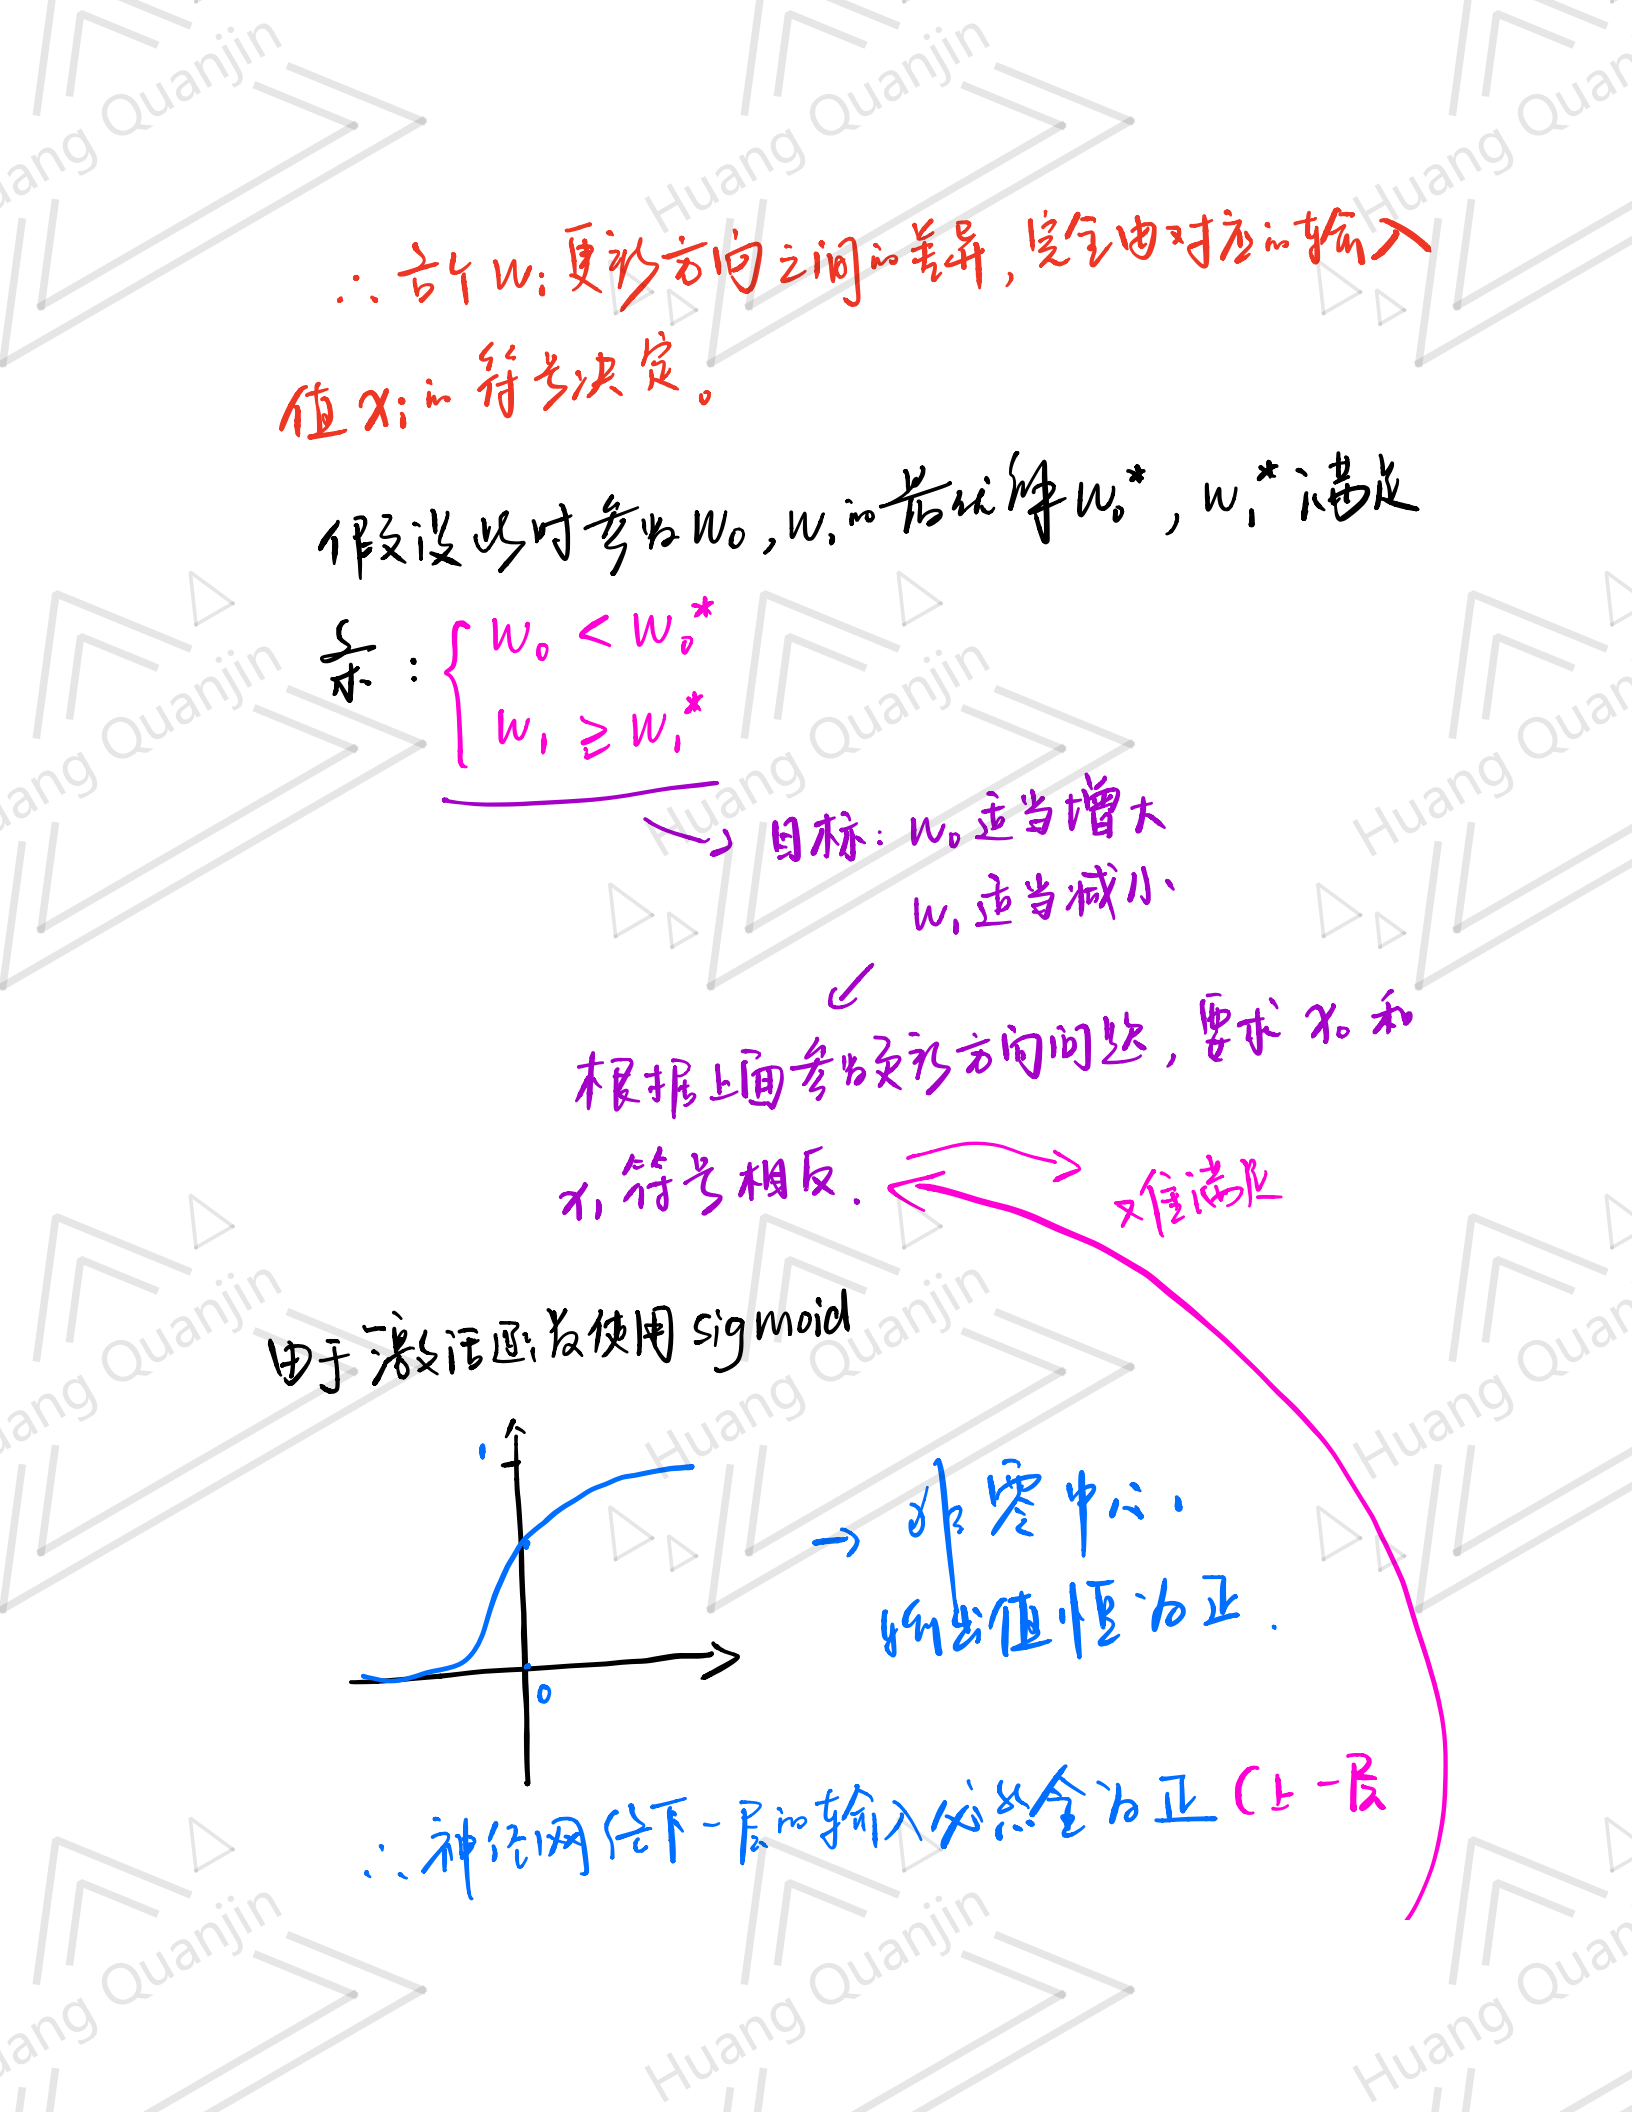 ∴各个 w_i 更新方向之间的差异,完全由对应的输入
值 x_i 的符号决定。
假设此时参数 w_0, w_1 的最优解 w_0^*, w_1^* 满足
条:{ w_0 < w_0^*
w_1 ≥ w_1^*
→ 目标: w_0 适当增大
w_1 适当减小
根据上面参数更新方向问题,要求 x_0 和
x_1 符号相反.
难满足
由于激活函数使用 sigmoid
1
→ 非零中心.
输出值恒为正.
0
∴神经网络下一层的输入必然全为正(上一层
Huang Quanjin